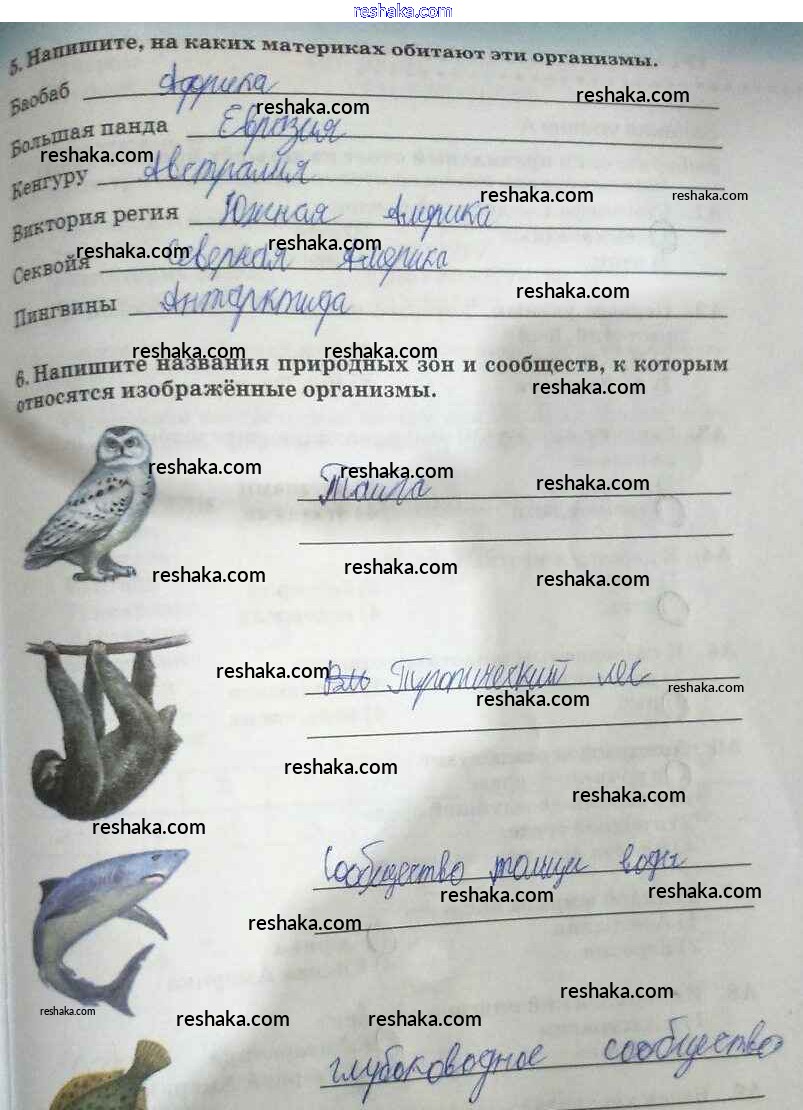 reshaka.com
5. Напишите, на каких материках обитают эти организмы.
Баобаб Африка
reshaka.com reshaka.com
Большая панда Евразия
reshaka.com
Кенгуру Австралия
reshaka.com reshaka.com
Виктория регия Южная Америка
reshaka.com reshaka.com
Секвойя Северная Америка
reshaka.com
Пингвины Антарктида
reshaka.com reshaka.com
6. Напишите названия природных зон и сообществ, к которым
относятся изображённые организмы.
reshaka.com
reshaka.com reshaka.com reshaka.com
Тайга
reshaka.com reshaka.com reshaka.com
reshaka.com
Тропический лес
reshaka.com reshaka.com
reshaka.com
reshaka.com
reshaka.com
Сообщество толщи воды
reshaka.com reshaka.com
reshaka.com
reshaka.com
reshaka.com reshaka.com reshaka.com
глубоководное сообщество